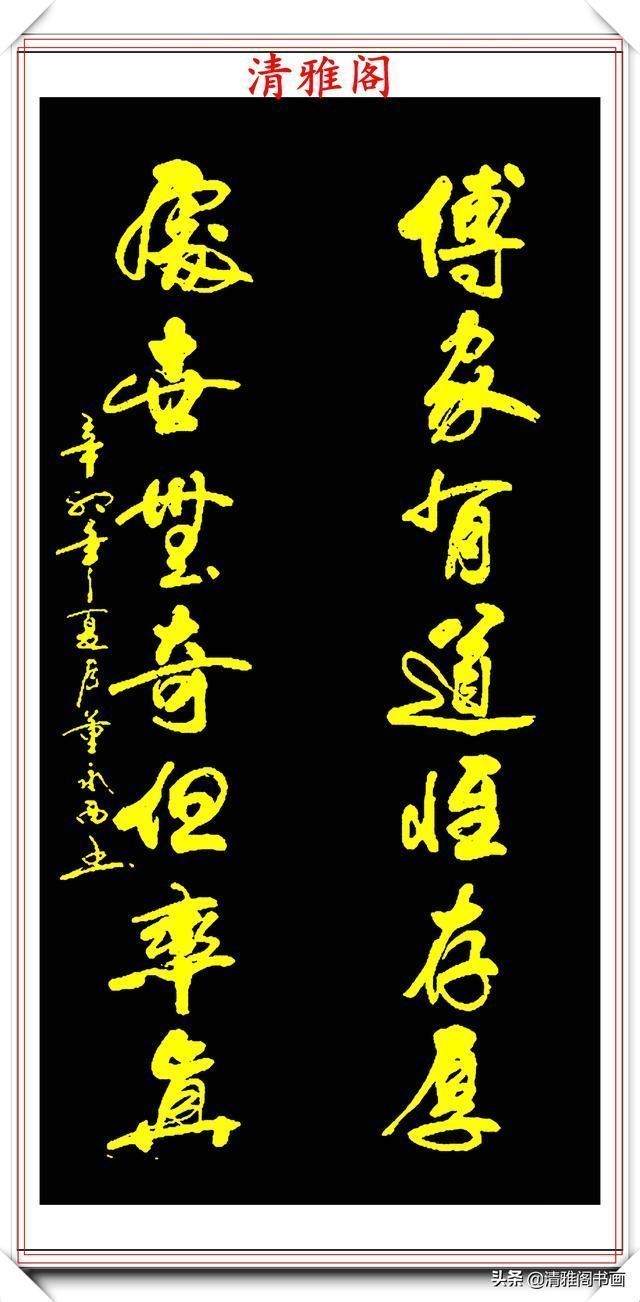 清雅阁
傅家有道惟存厚
處世無奇但率真
辛卯年之夏月董永西书
头条@清雅阁书画